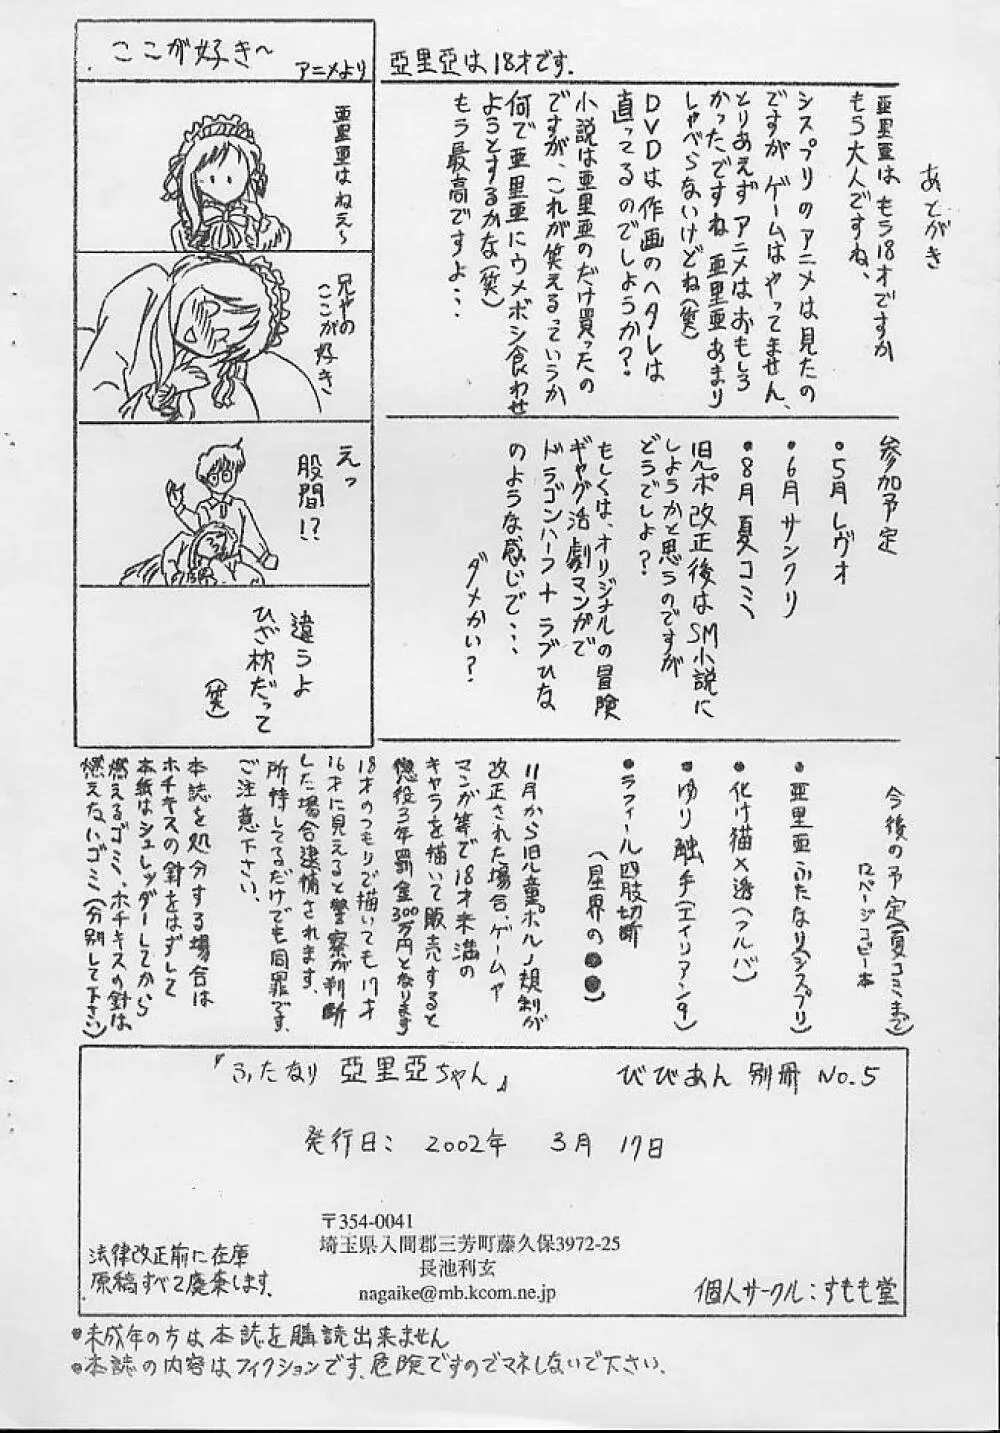 ここが好き～
アニメより
亜里亜はねえ～
兄やの
ここが好き
えっ
股間!?
違うよ
ひざ枕だって
(笑)
亞里亞は18才です.
あとがき
亜里亜はもう18才ですか
もう大人ですね、
シスプリのアニメは見たの
ですがゲームはやってません、
とりあえずアニメはおもしろ
かったですね 亜里亜あまり
しゃべらないけどね(笑)
DVDは作画のヘタレは
直ってるのでしようか?
小説は亜里亜のだけ買ったの
ですが、これが笑えるっていうか
何で亜里亜にウメボシ食わせ
ようとするかな(笑)
もう最高ですよ・・・
参加予定
●5月レヴオ
●6月サンクリ
●8月夏コミ
旧ポ改正後はSM小説に
しようかと思うのですが
どうでしよ?
もしくは、オリジナルの冒険
ギャグ活劇マンガで
ドラゴンハーフ+ラブひな
のような感じで・・・
ダメかい?
今後の予定(夏コミまで)
12ページコピー本
●亜里亜ふたなり(シスプリ)
●化け猫×透(フルバ)
●ゆり触手(エイリアン9)
●ラフィール四肢切断
(星界の●●)
11月から旧児童ポルノ規制が
改正された場合、ゲームや
マンガ等で18才未満の
キャラを描いて販売すると
懲役3年罰金300万円となります
18才のつもりで描いても17才
16才に見えると警察が判断
した場合逮捕されます.
所持してるだけでも同罪です.
ご注意下さい.
本誌を処分する場合は
ホチキスの針をはずして
本紙はシュレッダーしてから
燃えるゴミ、ホチキスの針は
燃えないゴミ(分別して下さい)
『ふたなり 亞里亞ちゃん』
びびあん 別冊 No.5
発行日: 2002年 3月 17日
〒354-0041
埼玉県入間郡三芳町藤久保3972-25
長池利玄
nagaike@mb.kcom.ne.jp
法律改正前に在庫
原稿すべて廃棄します.
個人サークル:すもも堂
●未成年の方は本誌を購読出来ません
●本誌の内容はフィクションです.危険ですのでマネしないで下さい.